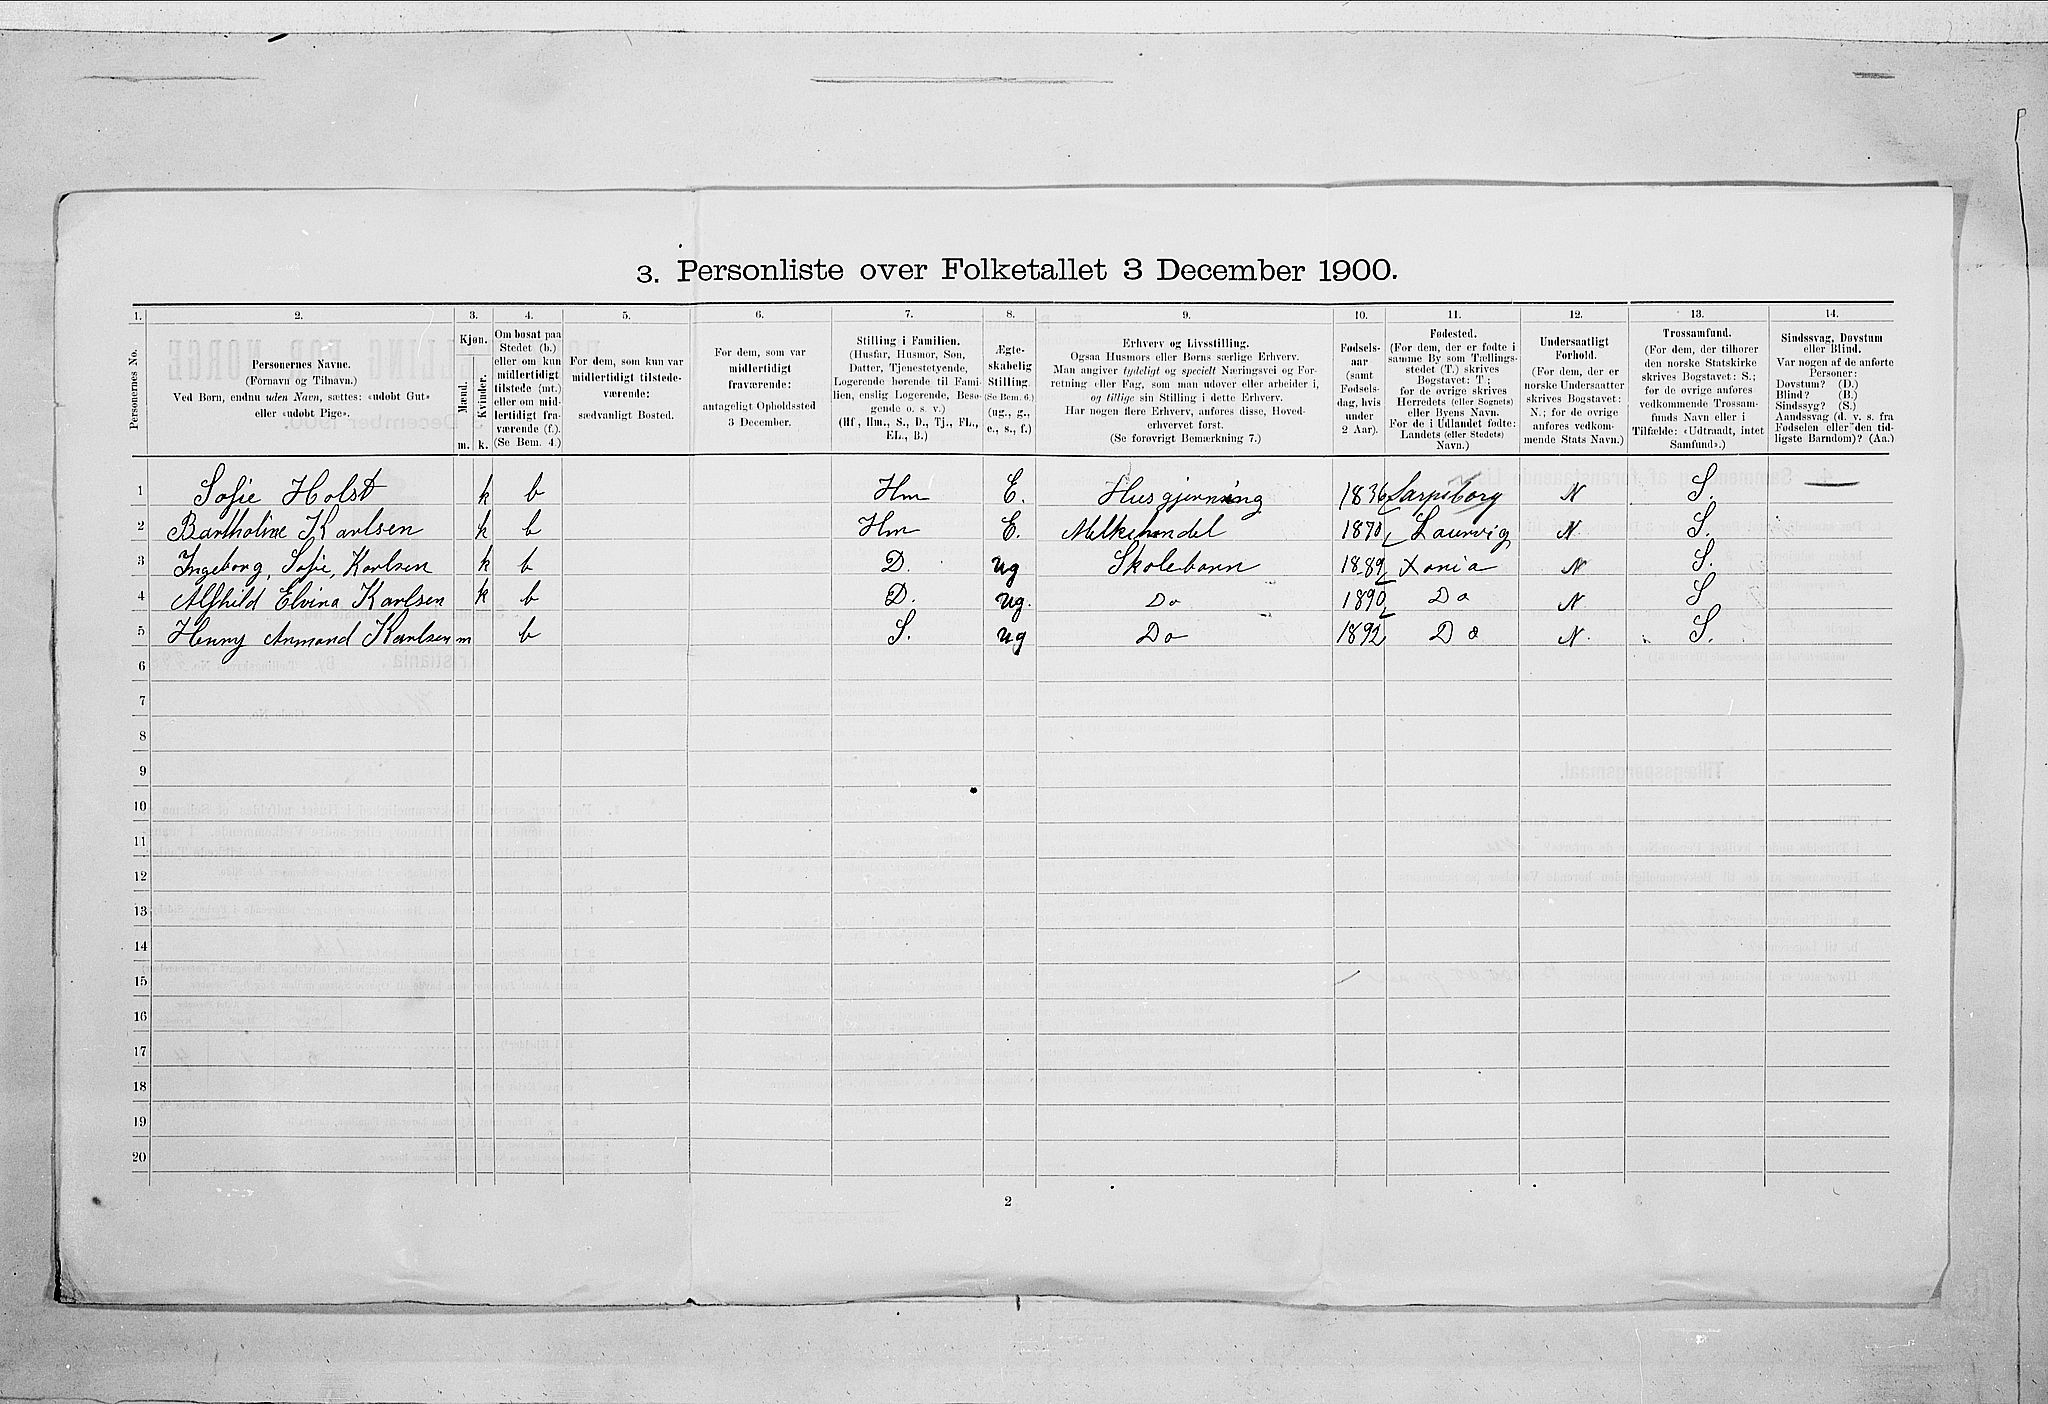 3. Personliste over Folketallet 3 December 1900.
1. 2. 3. 4. 5. 6. 7. 8. 9. 10. 11. 12. 13. 14.
Personernes No.
Personernes Navne.
(Fornavn og Tilnavn.)
Ved Børn, endnu uden Navn, sættes: «udøbt Gut»
eller «udøbt Pige».
Kjøn.
Mænd. Kvinder.
m. k.
Om bosat paa
Stedet (b.)
eller om kun
midlertidigt
tilstede (mt.)
eller om mid-
lertidigt fra-
værende (f.).
(Se Bem. 4.)
For dem, som kun var
midlertidigt tilstede-
værende:
sædvanligt Bosted.
For dem, som var
midlertidigt
fraværende:
antageligt Opholdssted
3 December.
Stilling i Familien.
(Husfar, Husmor, Søn,
Datter, Tjenestetyende,
Logerende hørende til Fami-
lien, enslig Logerende, Besø-
gende o. s. v.)
(Hf., Hm., S., D., Tj., FL.,
EL., B.)
Ægte-
skabelig
Stilling.
(Se Bem. 6.)
(ug., g.,
e., s., f.)
Erhverv og Livsstilling.
Ogsaa Husmors eller Børns særlige Erhverv.
Man angiver tydeligt og specielt Næringsvei og For-
retning eller Fag, som man udøver eller arbeider i,
og tillige sin Stilling i dette Erhverv.
Har nogen flere Erhverv, anføres disse, Hoved-
erhvervet først.
(Se forøvrigt Bemærkning 7.)
Fødsels-
aar
(samt
Fødsels-
dag, hvis
under
2 Aar).
Fødested.
(For dem, der er fødte i
samme By som Tællings-
stedet (T.) skrives
Bogstavet: T.;
for de øvrige skrives
Herredets (eller Sognets)
eller Byens Navn.
For de i Udlandet fødte:
Landets (eller Stedets)
Navn.)
Undersaatligt
Forhold.
(For dem, der er
norske Undersaatter
skrives Bogstavet:
N.; for de øvrige
anføres vedkom-
mende Stats Navn.)
Trossamfund.
(For dem, der tilhører
den norske Statskirke
skrives Bogstavet: S.;
for de øvrige anføres
vedkommende Trossam-
funds Navn eller i
Tilfælde: «Udtraadt, intet
Samfund».)
Sindssvag, Døvstum
eller Blind.
Var nogen af de anførte
Personer:
Døvstum? (D.)
Blind? (B.)
Sindssyg? (S.)
Aandssvag (d. v. s. fra
Fødselen eller den tid-
ligste Barndom)? (Aa.)
1 Sofie Holst k b Hm E. Husgjerning 1836 Sarpsborg N S.
2 Bartholine Karlsen k b Hm E. Melkehandel 1870 Laurvig N S.
3 Ingeborg, Sofie, Karlsen k b D. ug Skolebarn 1889 Xania N S.
4 Alfhild Elvina Karlsen k b D. ug. Do 1890 Do N S
5 Henry Armand Karlsen m b S. ug Do 1892 Do N. S.
6
7
8
9
10
11
12
13
14
15
16
17
18
19
20
2